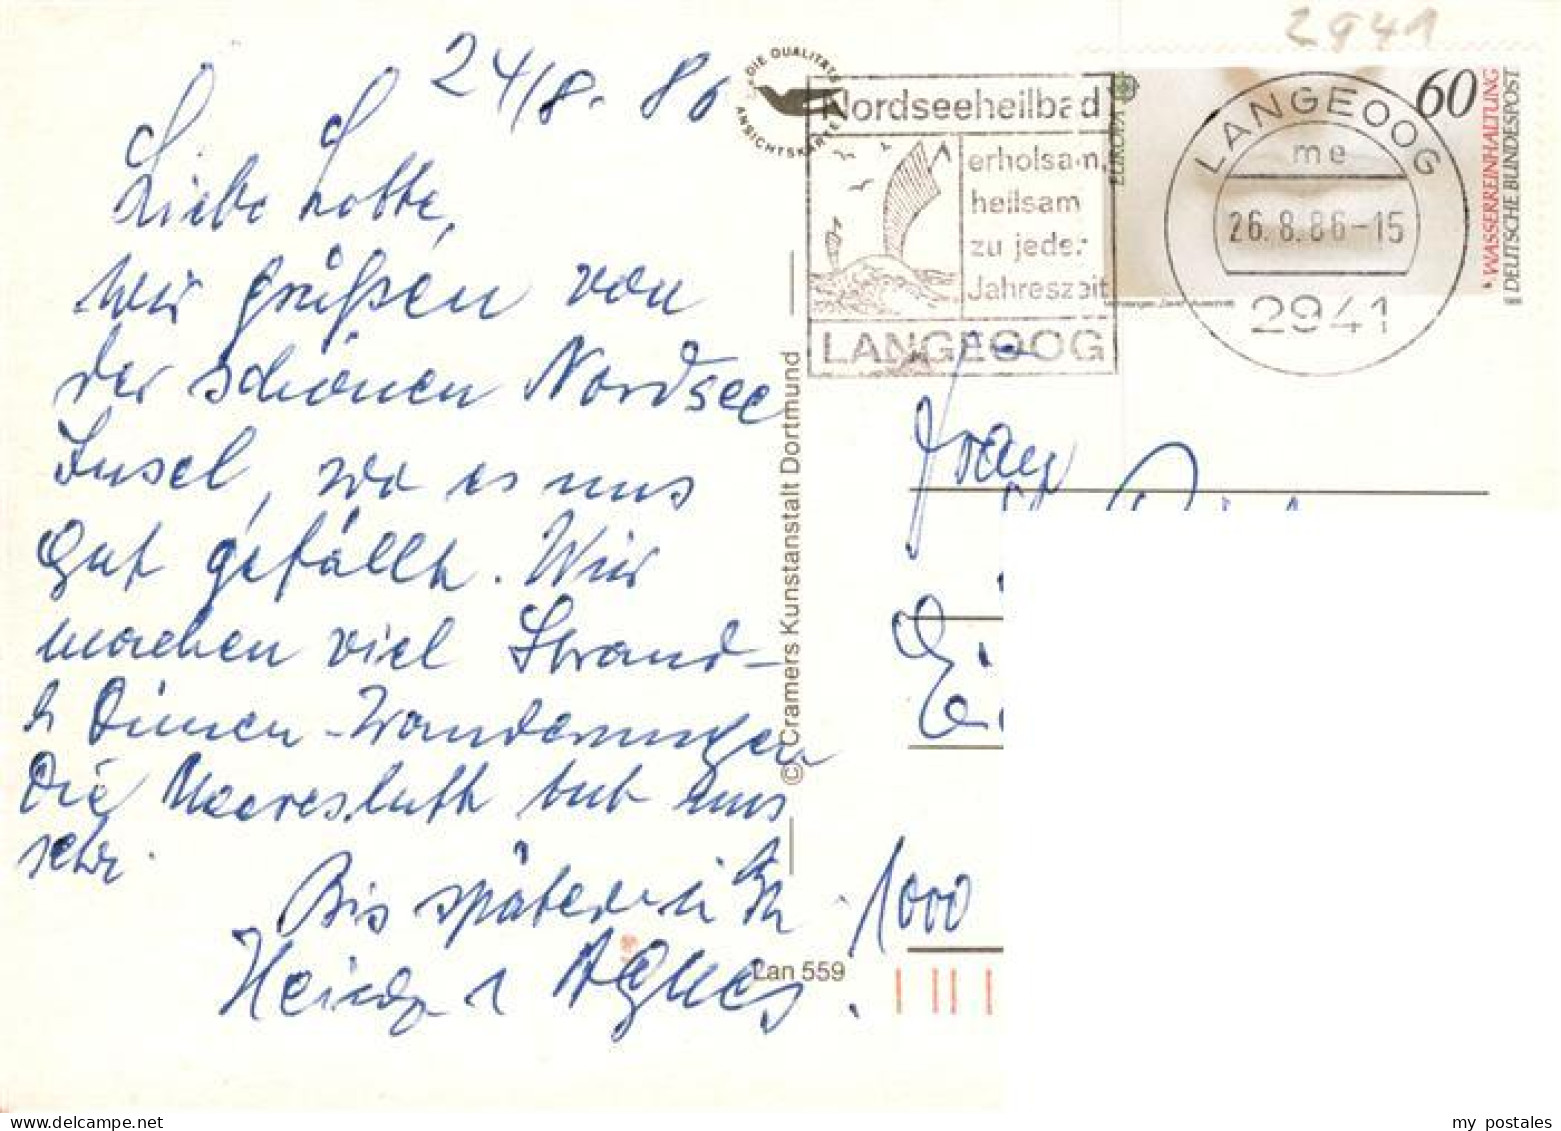 2941
24/8. 86
DIE QUALITÄTS
ANSICHTSKARTE
Nordseeheilbad
erholsam,
heilsam
zu jeder
Jahreszeit
LANGEOOG
EUROPA
60
WASSERREINHALTUNG
DEUTSCHE BUNDESPOST
LANGEOOG
me
26.8.86-15
2941
Liebe Lotte,
Wir grüßen von
der schönen Nordsee
Insel, wo es uns
gut gefällt. Wir
machen viel Strand-
u Dünen-Wanderungen
Die Meeresluft tut uns
sehr.
Bis später
u Agnes.
© Cramers Kunstanstalt Dortmund
Lan 559
Frau
1000
my postales